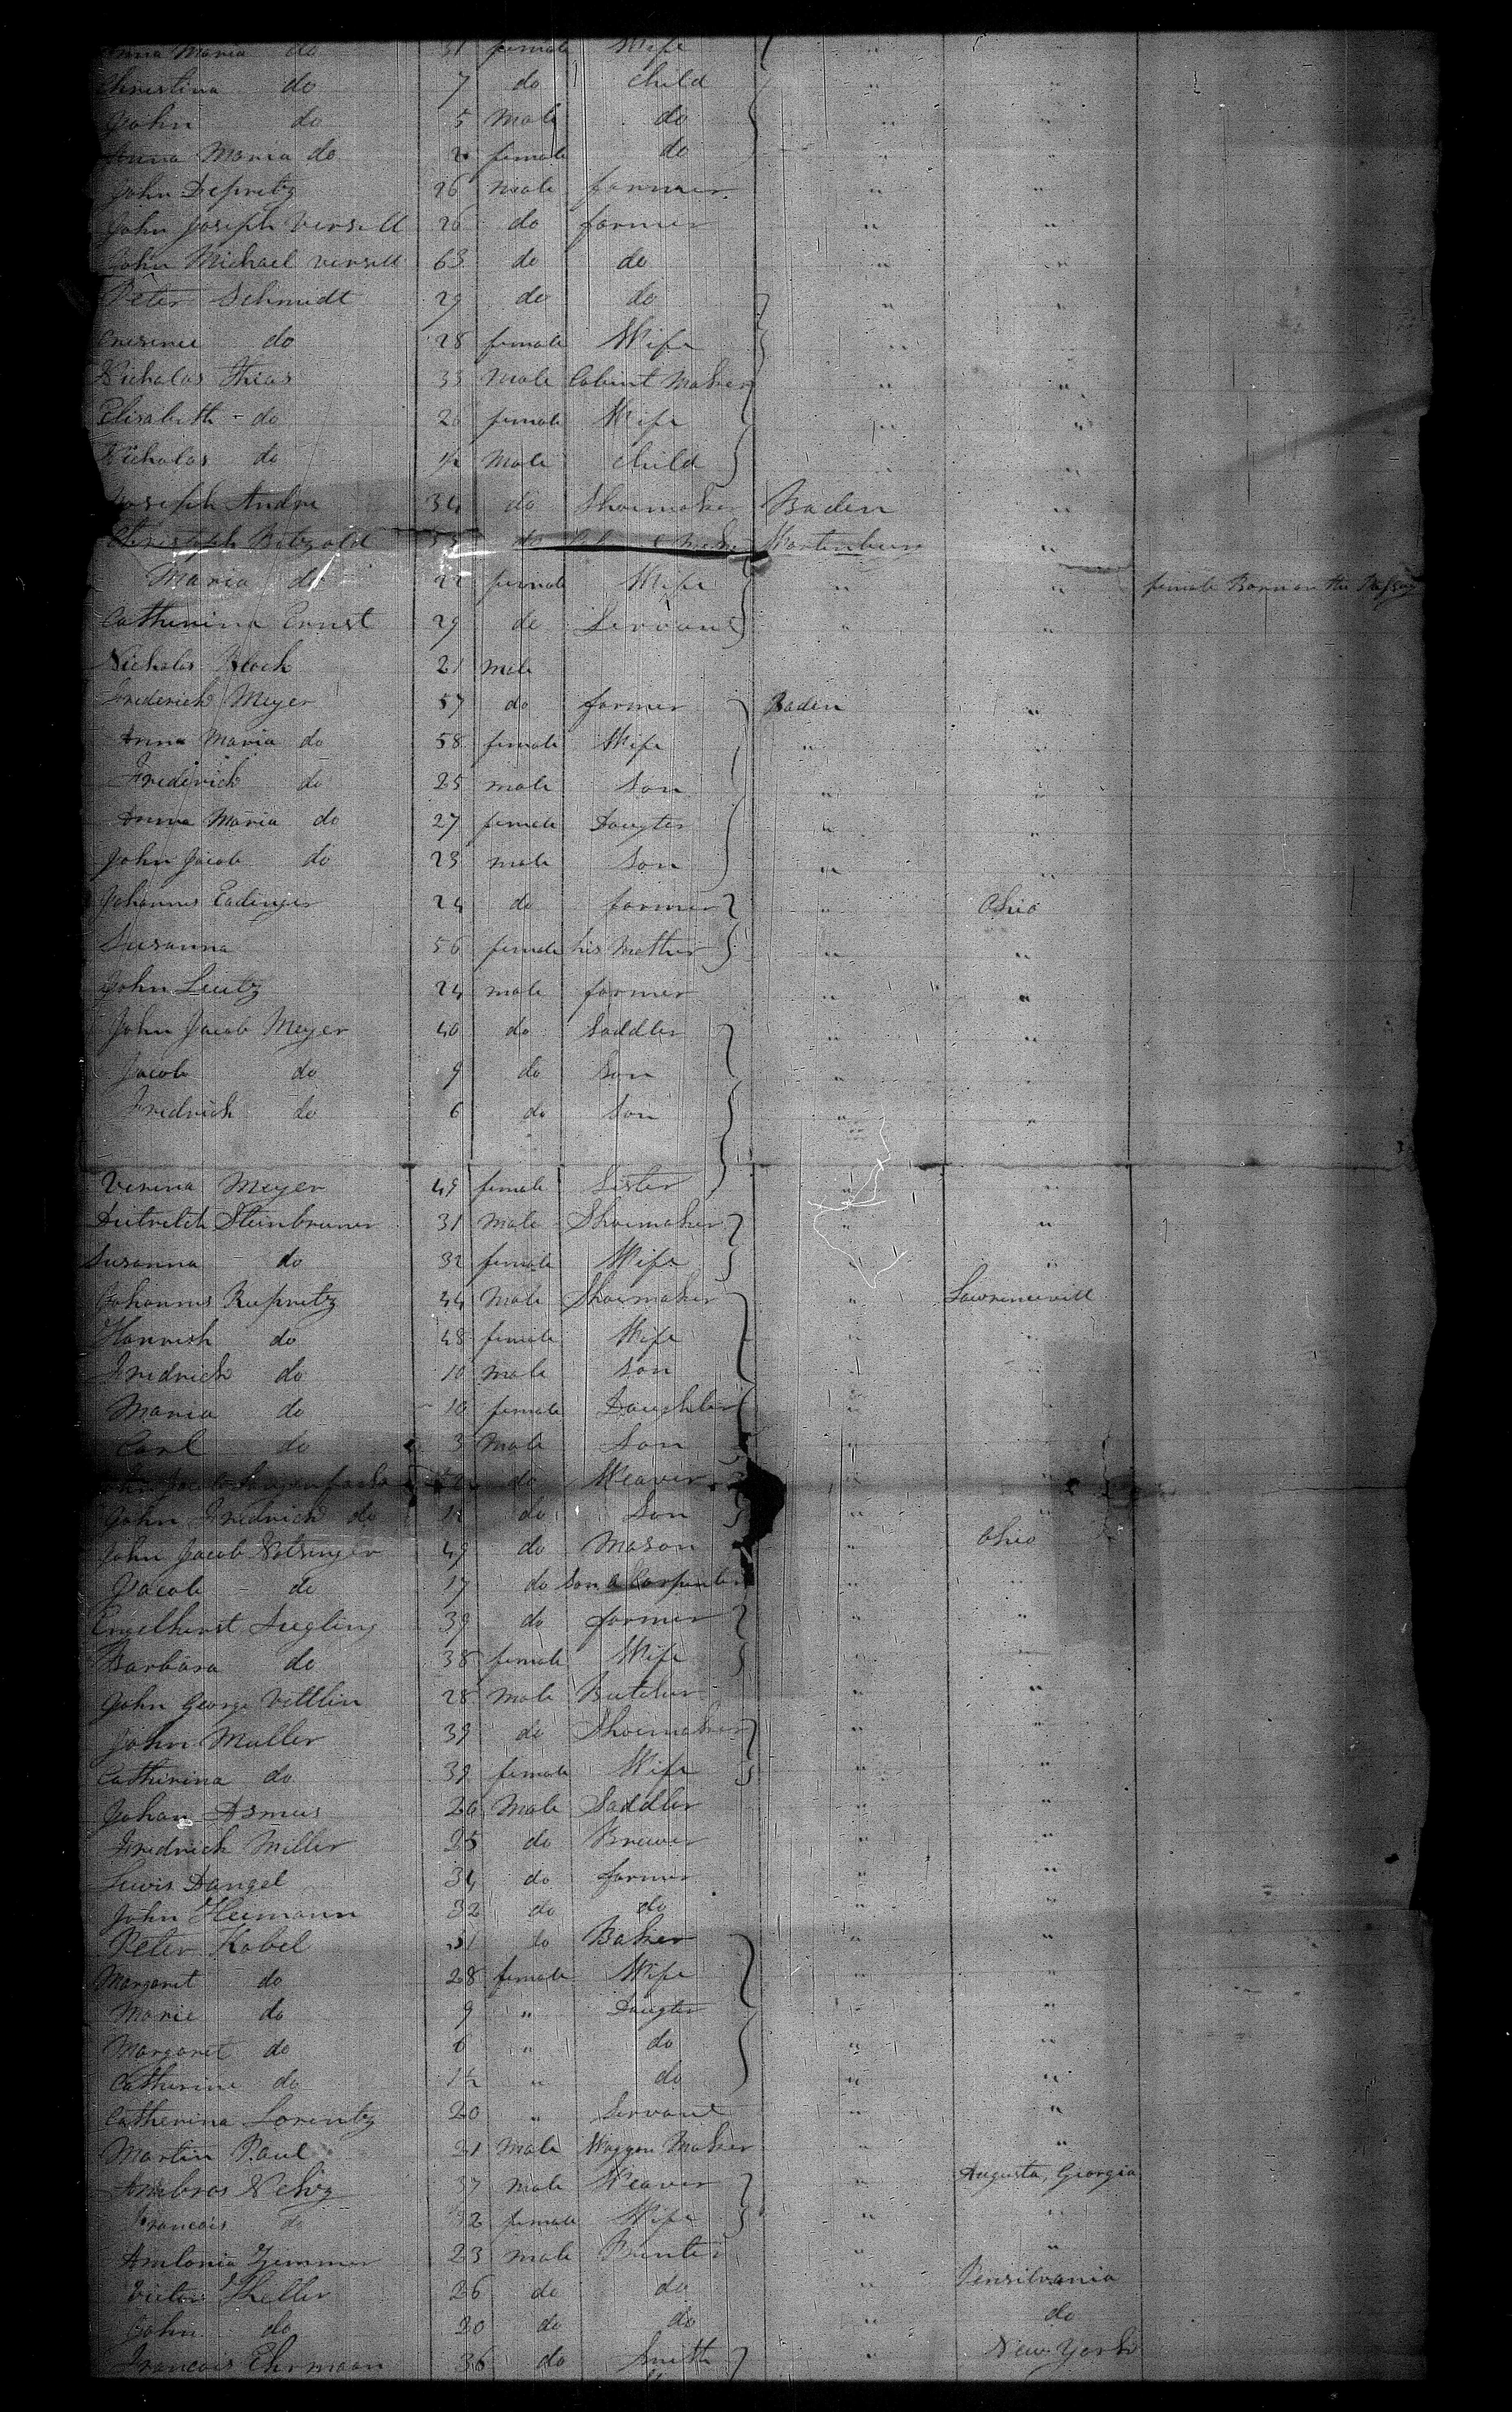 Anna Maria do 31 female Wife "
Christina do 7 do child " "
John do 5 Male do " "
Anna Maria do 2 female do " "
John Depretz 26 male farmer " "
John Joseph Versell 26 do farmer " "
John Michael Versell 63 do do " "
Peter Schmidt 29 do do " "
do 28 female Wife " "
Nicholas Thias 33 Male Cabint Maker " "
Elisabeth - do 26 female Wife " "
Nicholas do ½ Male child " "
Joseph Andre 34 do Shoemaker Baden "
Christoph do "
Maria do 22 female Wife " " female Born on the Passag
Catherina Ernst 29 do Servant " "
Nicholas Bloch 21 male
Frederich Meyer 57 do farmer Baden "
Anna Maria do 58 female Wife " "
Frederich do 25 male Son " "
Anna Maria do 27 female Daugter " "
John Jacob do 23 male Son " "
Johannes Eadinger 24 do farmer " Ohio
Susanna 56 female his Mother " "
John Leutz 24 male farmer " "
John Jacob Meyer 40 do Saddler " "
Jacob do 9 do Son " "
Fredrich do 6 do Son " "
Verena Meyer 49 female Sister " "
Deitrilch Steinbruner 31 Male Shoemaker " "
Susanna do 32 female Wife " "
Johannes Rupretz 44 Male Shoemaker " Lawrencevill
Hannah do 48 female Wife " "
Fredrich do 10 male son " "
Maria do 10 female Daughter " "
Carl do 3 Male Son "
Jacob do Weaver "
John Fredrich do 12 do Son " "
John Jacob Notsinger 49 do Mason " Ohio
Jacob - do 17 do Son a Carpenter "
Engelhart Siegling 39 do farmer " "
Barbara do 38 female Wife " "
John George Vittlin 28 Male Butcher " "
John Muller 39 do Shoemaker " "
Catherina do 39 female Wife " "
Johan Asmus 20 Male Saddler " "
Fredrich Miller 25 do Brewer " "
Lewis Dangel 34 do farmer " "
John Heimann 32 do do " "
Peter Kobel 31 do Baker " "
Margaret do 28 female Wife " "
Marie do 9 " Daugter " "
Margaret do 6 " do " "
Catherine do 1½ " do " "
Catherina Lorentz 20 " Servant " "
Martin Paul 21 Male Waggon Maker " "
Ambros 37 male Weaver " Augusta, Georgia
Francois do 32 female Wife " "
Antonia Zimmer 23 male Printer " "
Victor Keller 26 do do " Pensilvania
John do 20 do do " do
Francois Ehrmann 36 do Smith " New York